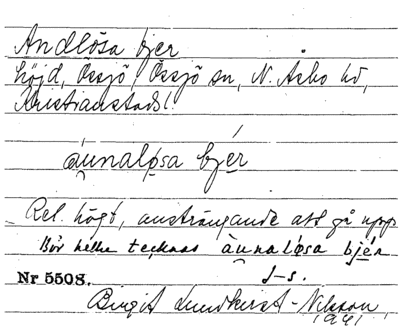 Andlösa bjer
höjd, Össjö, Össjö sn, N. Åsbo hd,
Kristianstads l.
àunaløsa bjér
Rel. högt, ansträngande att gå upp
Bör hellre tecknas àunaløsa bjér
Nr 5508. J-s.
Birgit Lundkvist-Nilsson,
1941